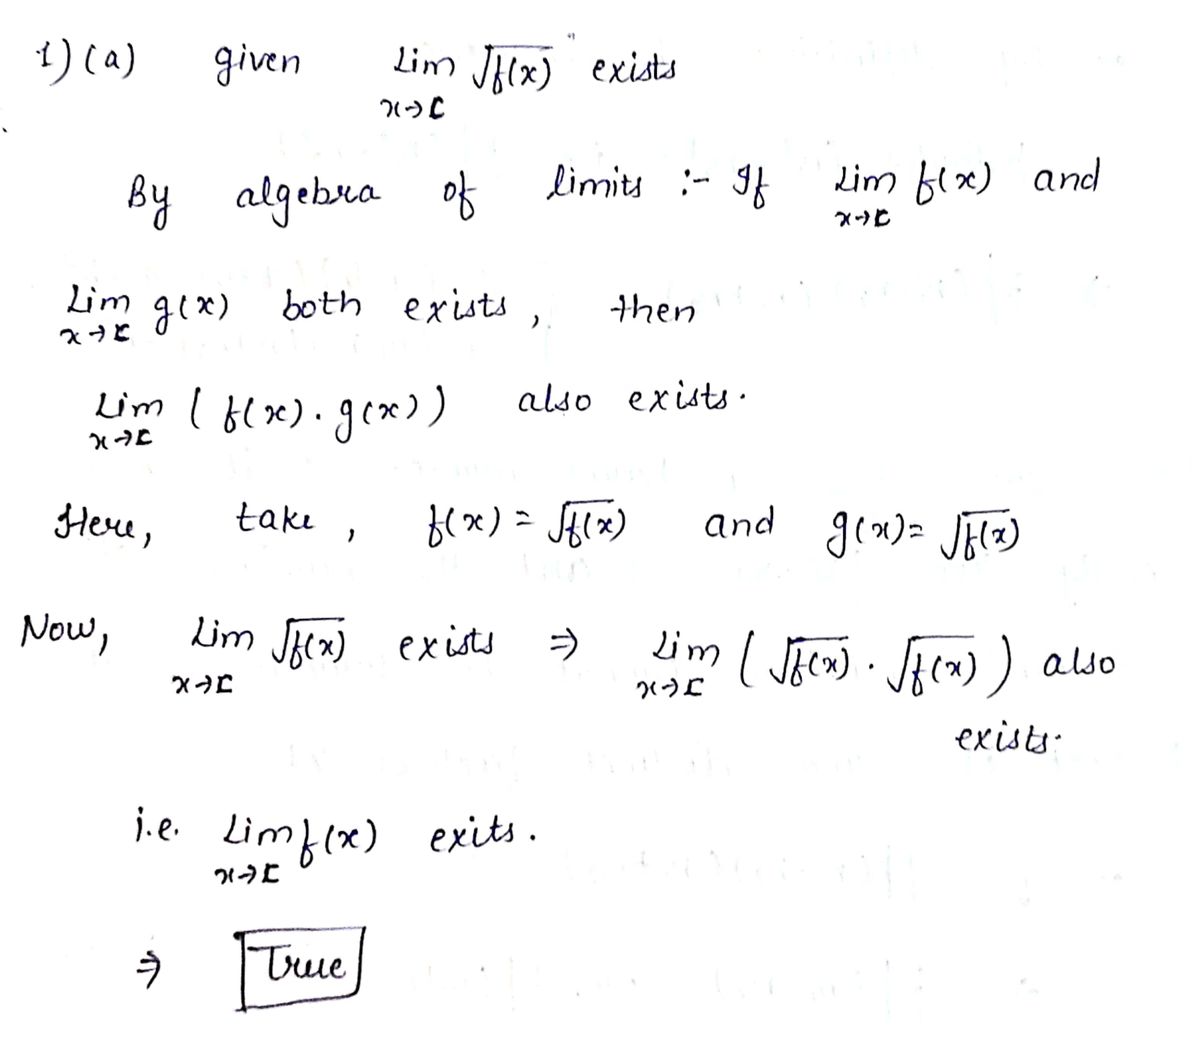 1)(a) given Lim √f(x) exists
x→c
By algebra of limits :- If Lim f(x) and
x→c
Lim g(x) both exists, then
x→c
Lim (f(x).g(x)) also exists.
x→c
Here, take, f(x) = √f(x) and g(x) = √f(x)
Now, Lim √f(x) exists ⇒ Lim (√f(x) . √f(x)) also
x→c x→c
exists.
i.e. Lim f(x) exits.
x→c
⇒ True